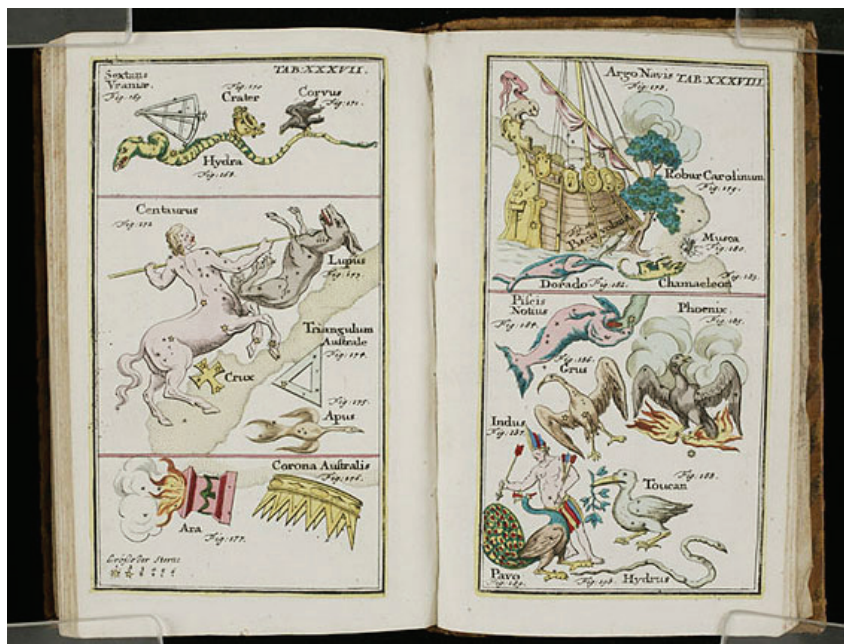 TAB: XXXVII.
Sextans
Uraniæ.
Fig: 169.
Fig: 170.
Crater
Corvus
Fig: 171.
Hydra
Fig: 168.
Centaurus
Fig: 172
Lupus
Fig: 173.
Triangulum
Australe
Fig: 174.
Crux
Fig: 175.
Apus
Corona Australis
Fig: 176.
Ara
Fig: 177.
der Sterne
Argo Navis TAB: XXXVIII
Fig: 178.
Robur Carolinum
Fig: 179.
Piscis volans
Musca
Fig: 180.
Fig: 183.
Dorado Fig: 182.
Chamaeleon
Piscis
Notius
Fig: 184.
Phoenix.
Fig: 185.
Fig: 186.
Grus
Indus
Fig: 187.
Fig: 188.
Toucan
Pavo
Fig: 189.
Hydrus